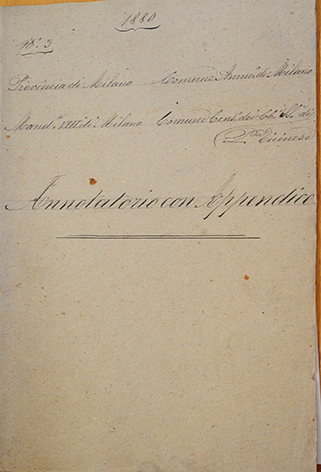 1880
N.° 3
Provincia di Milano Comune Amm.° di Milano
Mand.° VIII. di Milano Comune Cens.° dei CC. SS. di
P.ta Ticinese
Annotatorio con Appendice